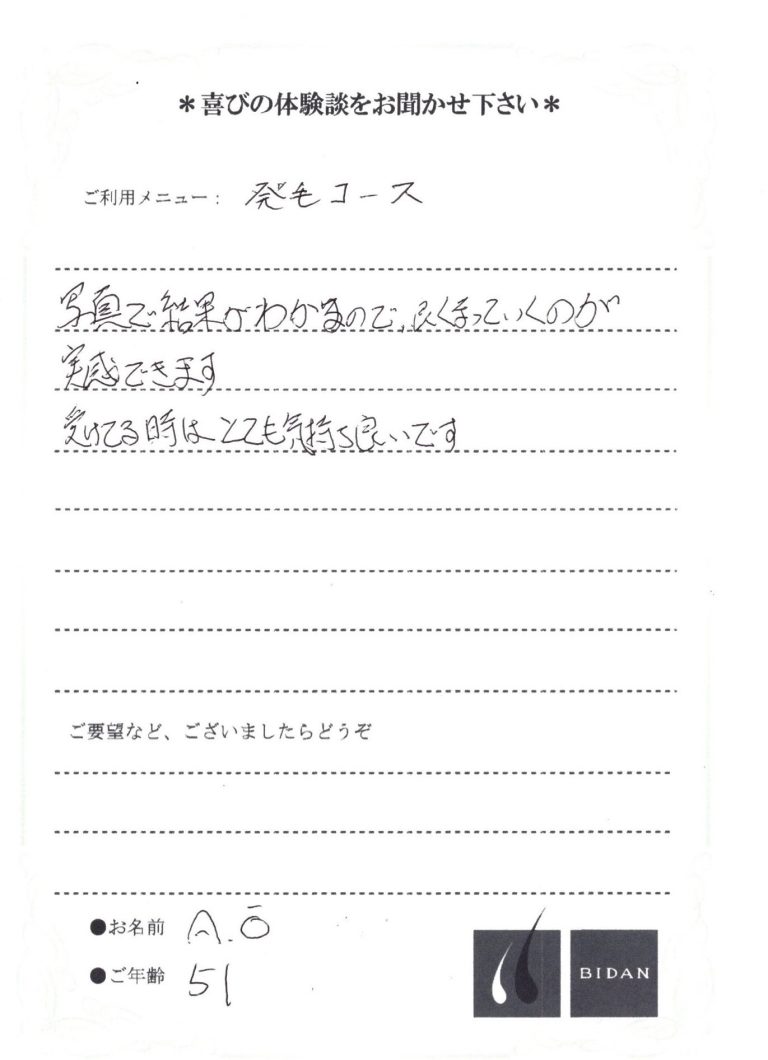 ＊喜びの体験談をお聞かせ下さい＊
ご利用メニュー： 発毛コース
写真で結果がわかるので、良くなっていくのが
実感できます
受けてる時はとても気持ち良いです
ご要望など、ございましたらどうぞ
●お名前 A.O
●ご年齢 51
BIDAN